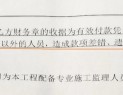 乙方财务章的收据为有效付款凭
以外的人员,造成款项差错、遗
为本工程配备专业施工监理人员